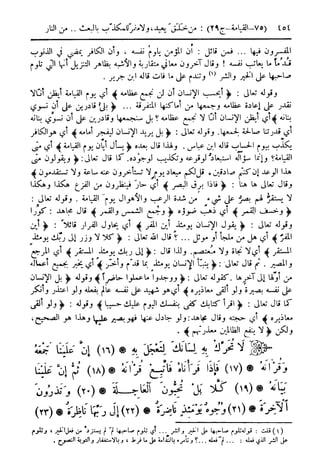 ٤٥٤ (٧٥ - القيامة - ج ٢٩) : من خلق يعيد ، ولا مفر للمكذب بالبعث .. من النار
المفسرون فيها ... فمن قائل : أن المؤمن يلوم نفسه ، وأن الكافر يمضي في الذنوب
قدماً ما يعاتب نفسه ؟ وقال آخرون معاني متقاربة والأشبه بظاهر التنزيل أنها التي تلوم
صاحبها على الخير والشر (١) وتندم على ما فات قاله ابن جرير .
وقوله تعالى : ﴿أيحسب الإنسان أن لن نجمع عظامه﴾ أي يوم القيامة أيظن أنا لا
نقدر على إعادة عظامه وجمعها من أماكنها المتفرقة ... ﴿بلى قادرين على أن نسوي
بنانه﴾ أي أيظن الإنسان أنا لا نجمع عظامه ؟ بل سنجمعها وقادرين على أن نسوي بنانه
أي قدرتنا صالحة لجمعها . وقوله تعالى : ﴿بل يريد الإنسان ليفجر أمامه﴾ أي هو الكافر
يكذب بيوم الحساب قاله ابن عباس . ولهذا قال بعده ﴿يسأل أيان يوم القيامة﴾ أي متى
القيامة؟ وإنما سؤاله استبعاداً لوقوعه وتكذيب لوجوده. كما قال تعالى: ﴿ويقولون متى
هذا الوعد إن كنتم صادقين • قل لكم ميعاد يوم لا تستأخرون عنه ساعة ولا تستقدمون﴾
وقال تعالى ها هنا : ﴿فإذا برق البصر﴾ أي حار فينظرون من الفزع هكذا وهكذا
لا يستقر لهم بصر على شيء من شدة الرعب والأهوال يوم القيامة . وقوله تعالى :
﴿وخسف القمر﴾ أي ذهب ضوؤه ﴿وجمع الشمس والقمر﴾ قال مجاهد : كورا
وقوله تعالى : ﴿يقول الإنسان يومئذ أين المفر﴾ أي يحاول الفرار قائلاً : ﴿أين
المفر﴾ أي هل من ملجأ أو موئل ... ؟ قال الله تعالى : ﴿كلا لا وزر إلى ربك يومئذ
المستقر﴾ أي لا نجاة ولا معتصم. ولذا قال : ﴿إلى ربك يومئذ المستقر﴾ أي المرجع
والمصير . ثم قال تعالى : ﴿ينبأ الإنسان يومئذ بما قدم وأخر﴾ أي يخبر بجميع أعماله
من أولها إلى آخرها . كقوله تعالى : ﴿ووجدوا ما عملوا حاضراً﴾ وقوله ﴿بل الإنسان
على نفسه بصيرة ولو ألقى معاذيره﴾ أي هو شهيد على نفسه عالم بفعله ولو اعتذر وأنكر
كما قال تعالى : ﴿اقرأ كتابك كفى بنفسك اليوم عليك حسيباً﴾ وقوله : ﴿ولو ألقى
معاذيره﴾ أي حجته وقال مجاهد : ولو جادل عنها فهو بصير عليها وهذا هو الصحيح ،
ولكن ﴿لا ينفع الظالمين معذرتهم﴾ .
﴿ لَا تُحَرِّكْ بِهِ لِسَانَكَ لِتَعْجَلَ بِهِ ۞ (١٦) إِنَّ عَلَيْنَا جَمْعَهُ
وَقُرْءَانَهُ ۞ (١٧) فَإِذَا قَرَأْنَاهُ فَاتَّبِعْ قُرْءَانَهُ ۞ (١٨) ثُمَّ إِنَّ عَلَيْنَا
بَيَانَهُ ۞ (١٩) كَلَّا بَلْ تُحِبُّونَ الْعَاجِلَةَ ۞ (٢٠) وَتَذَرُونَ
الْآخِرَةَ ۞ (٢١) وُجُوهٌ يَوْمَئِذٍ نَّاضِرَةٌ ۞ (٢٢) إِلَىٰ رَبِّهَا نَاظِرَةٌ ۞ (٢٣)
(١) قلت : قوله تلوم صاحبها على الخير والشر ... أي تلوم صاحبها لم لم يستزد من فعل الخير ، وتلوم
على الشر الذي فعله : ... لم فعله ... ؟ وتأمره بالندامة على ما فرط ، وبالاستغفار والتوبة النصوح .